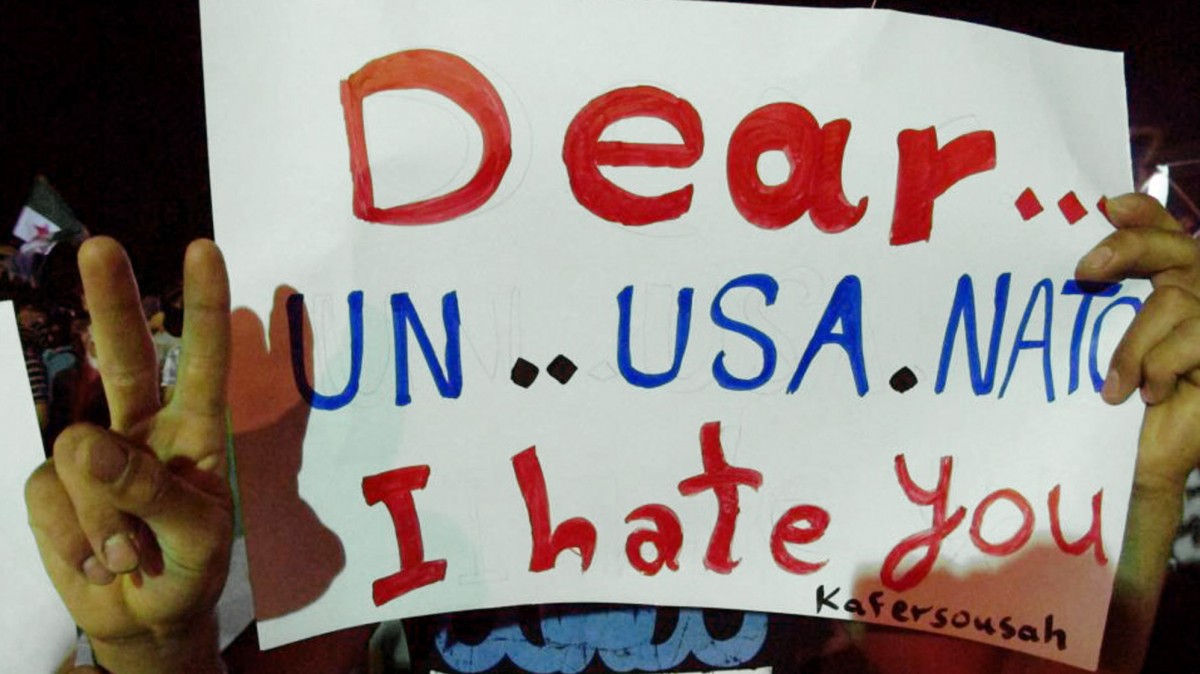 Dear...
UN..USA.NATO
I hate you
Kafersousah